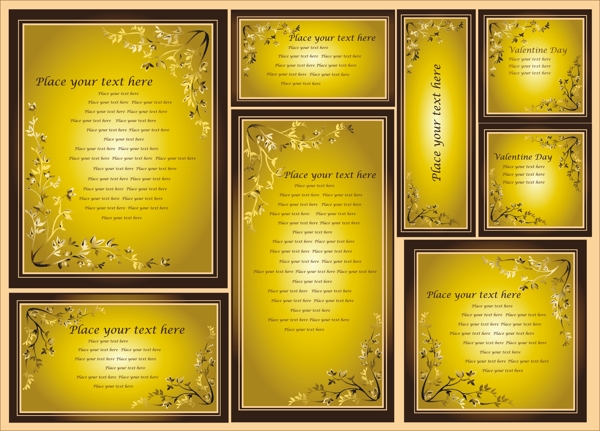 Place your text here
Place your text here
Place your text here  Place your text here
Place your text here  Place your text here
Place your text here  Place your text here
Place your text here
Place your text here  Place your text here
Place your text here  Place your text here  Place your text here
Place your text here  Place your text here
Place your text here  Place your text here
Place your text here  Place your text here
Place your text here  Place your text here
Place your text here  Place your text here
Place your text here
Place your text here
Place your text here
Place your text here
Place your text here  Place your text here
Place your text here  Place your text here
Place your text here
Place your text here
Place your text here
Place your text here  Place your text here
Place your text here
Place your text here  Place your text here
Place your text here
Place your text here
Place your text here
Place your text here
Place your text here  Place your text here
Place your text here  Place your text here
Place your text here  Place your text here
Place your text here
Place your text here  Place your text here
Place your text here  Place your text here
Place your text here  Place your text here  Place your text here
Place your text here  Place your text here
Place your text here  Place your text here
Place your text here  Place your text here
Place your text here  Place your text here
Place your text here
Place your text here
Valentine Day
Place your text here
Place your text here
Place your text here
Valentine Day
Place your text here
Place your text here
Place your text here
Place your text here
Place your text here
Place your text here  Place your text here
Place your text here  Place your text here
Place your text here
Place your text here  Place your text here
Place your text here  Place your text here
Place your text here
Place your text here